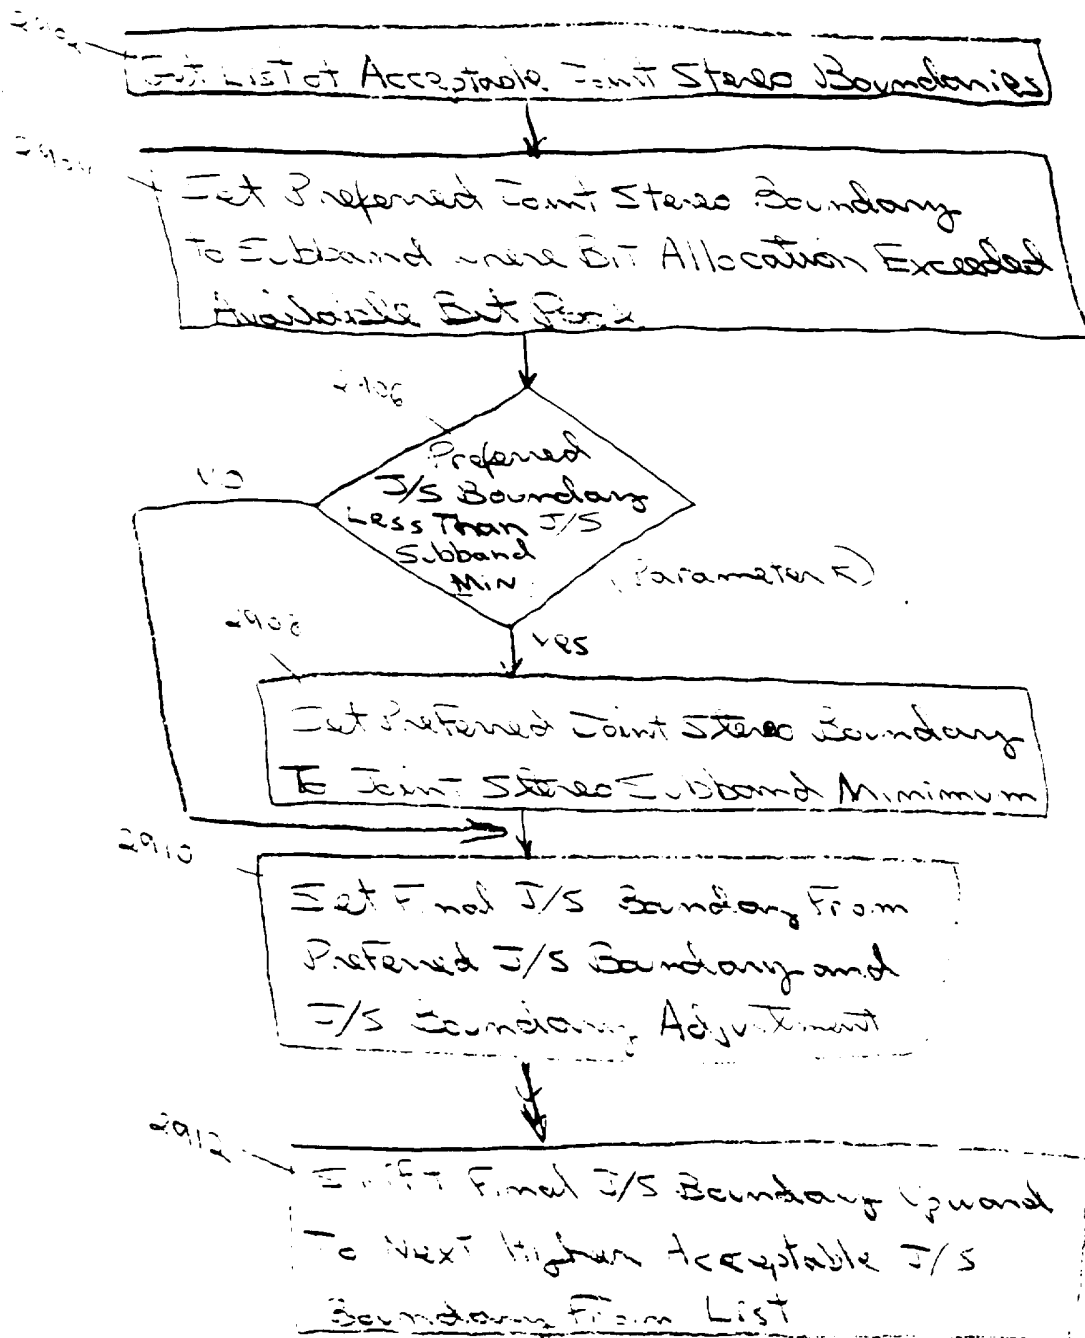 2902
Get List of Acceptable Joint Stereo Boundaries
2904
Set Preferred Joint Stereo Boundary
To Subband where Bit Allocation Exceeded
Available Bit Pool
2906
Preferred
J/S Boundary
Less Than J/S
Subband
Min
NO
(Parameter K)
yes
2908
Set Preferred Joint Stereo Boundary
To Joint Stereo Subband Minimum
2910
Set Final J/S Boundary From
Preferred J/S Boundary and
J/S Boundary Adjustment
2912
Shift Final J/S Boundary Upward
To Next Higher Acceptable J/S
Boundary From List